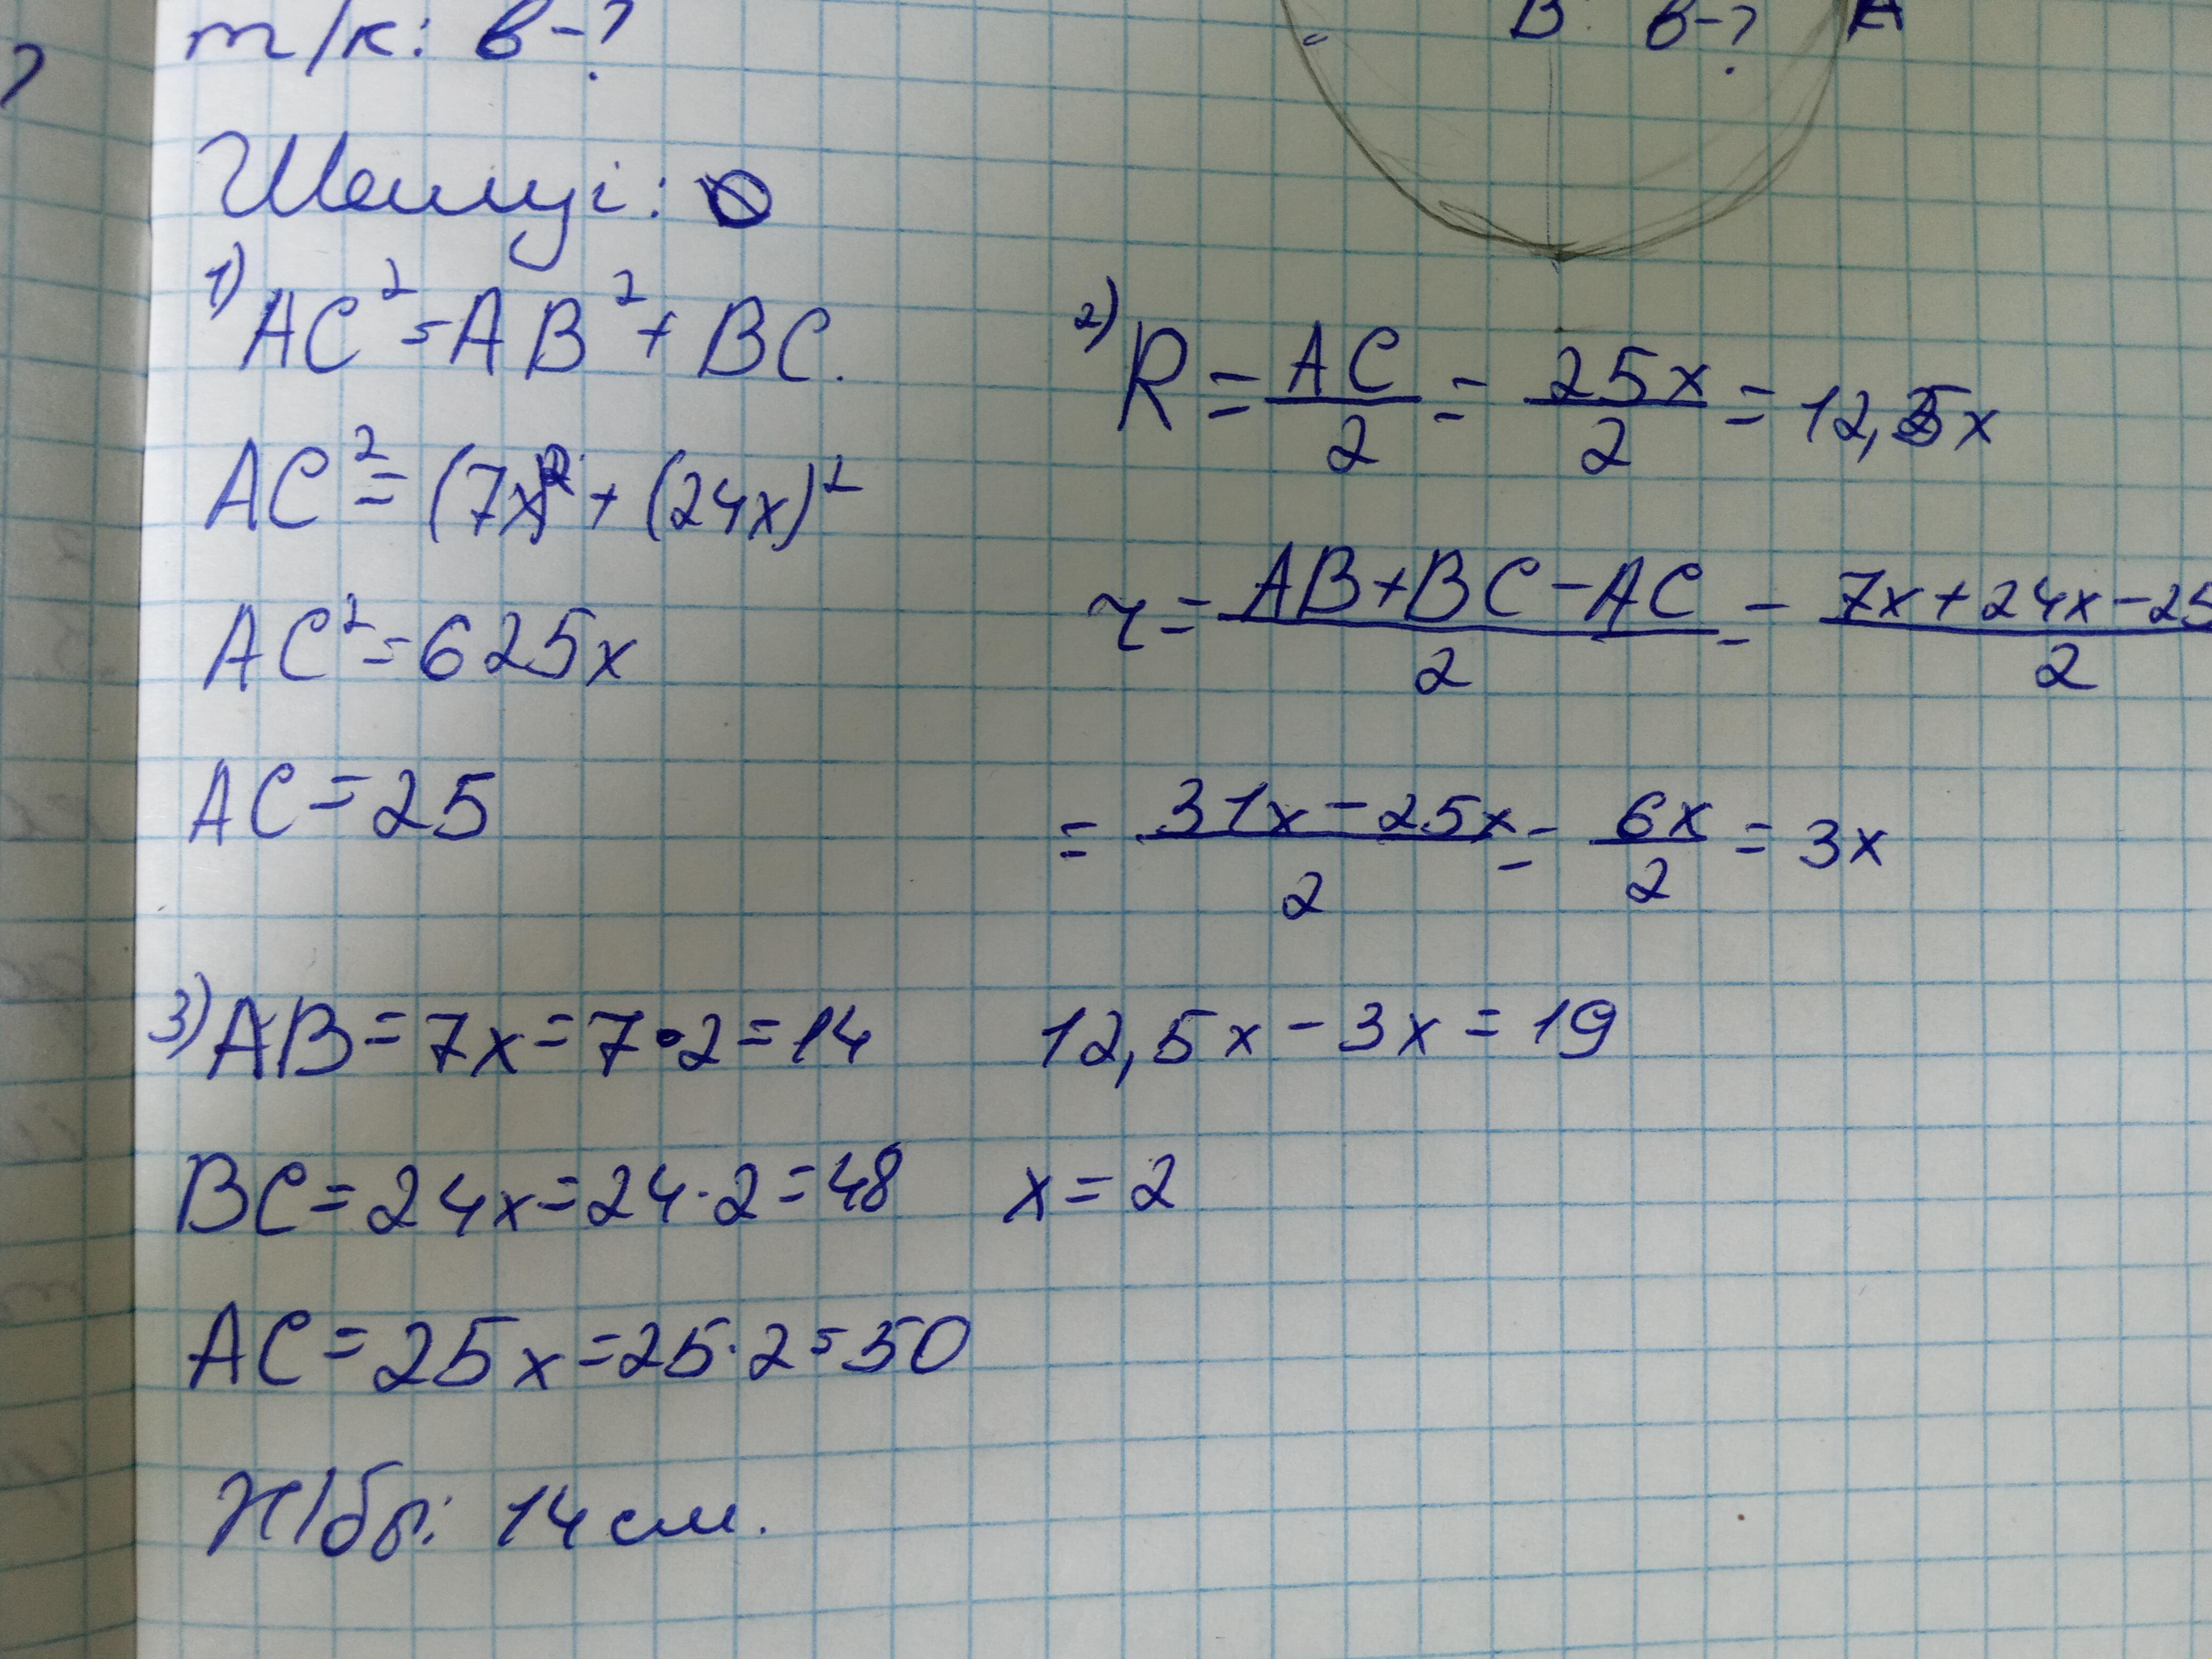 т/к: в-?
B в-? A
Шешуі:
1) AC² = AB² + BC.
AC² = (7x)² + (24x)²
AC² = 625x
AC = 25
2) R = AC/2 = 25x/2 = 12,5x
r = AB+BC-AC/2 = 7x+24x-25/2
= 31x-25x/2 = 6x/2 = 3x
3) AB = 7x = 7·2 = 14
BC = 24x = 24·2 = 48
AC = 25x = 25·2 = 50
12,5x - 3x = 19
x = 2
Ж/бы: 14 см.